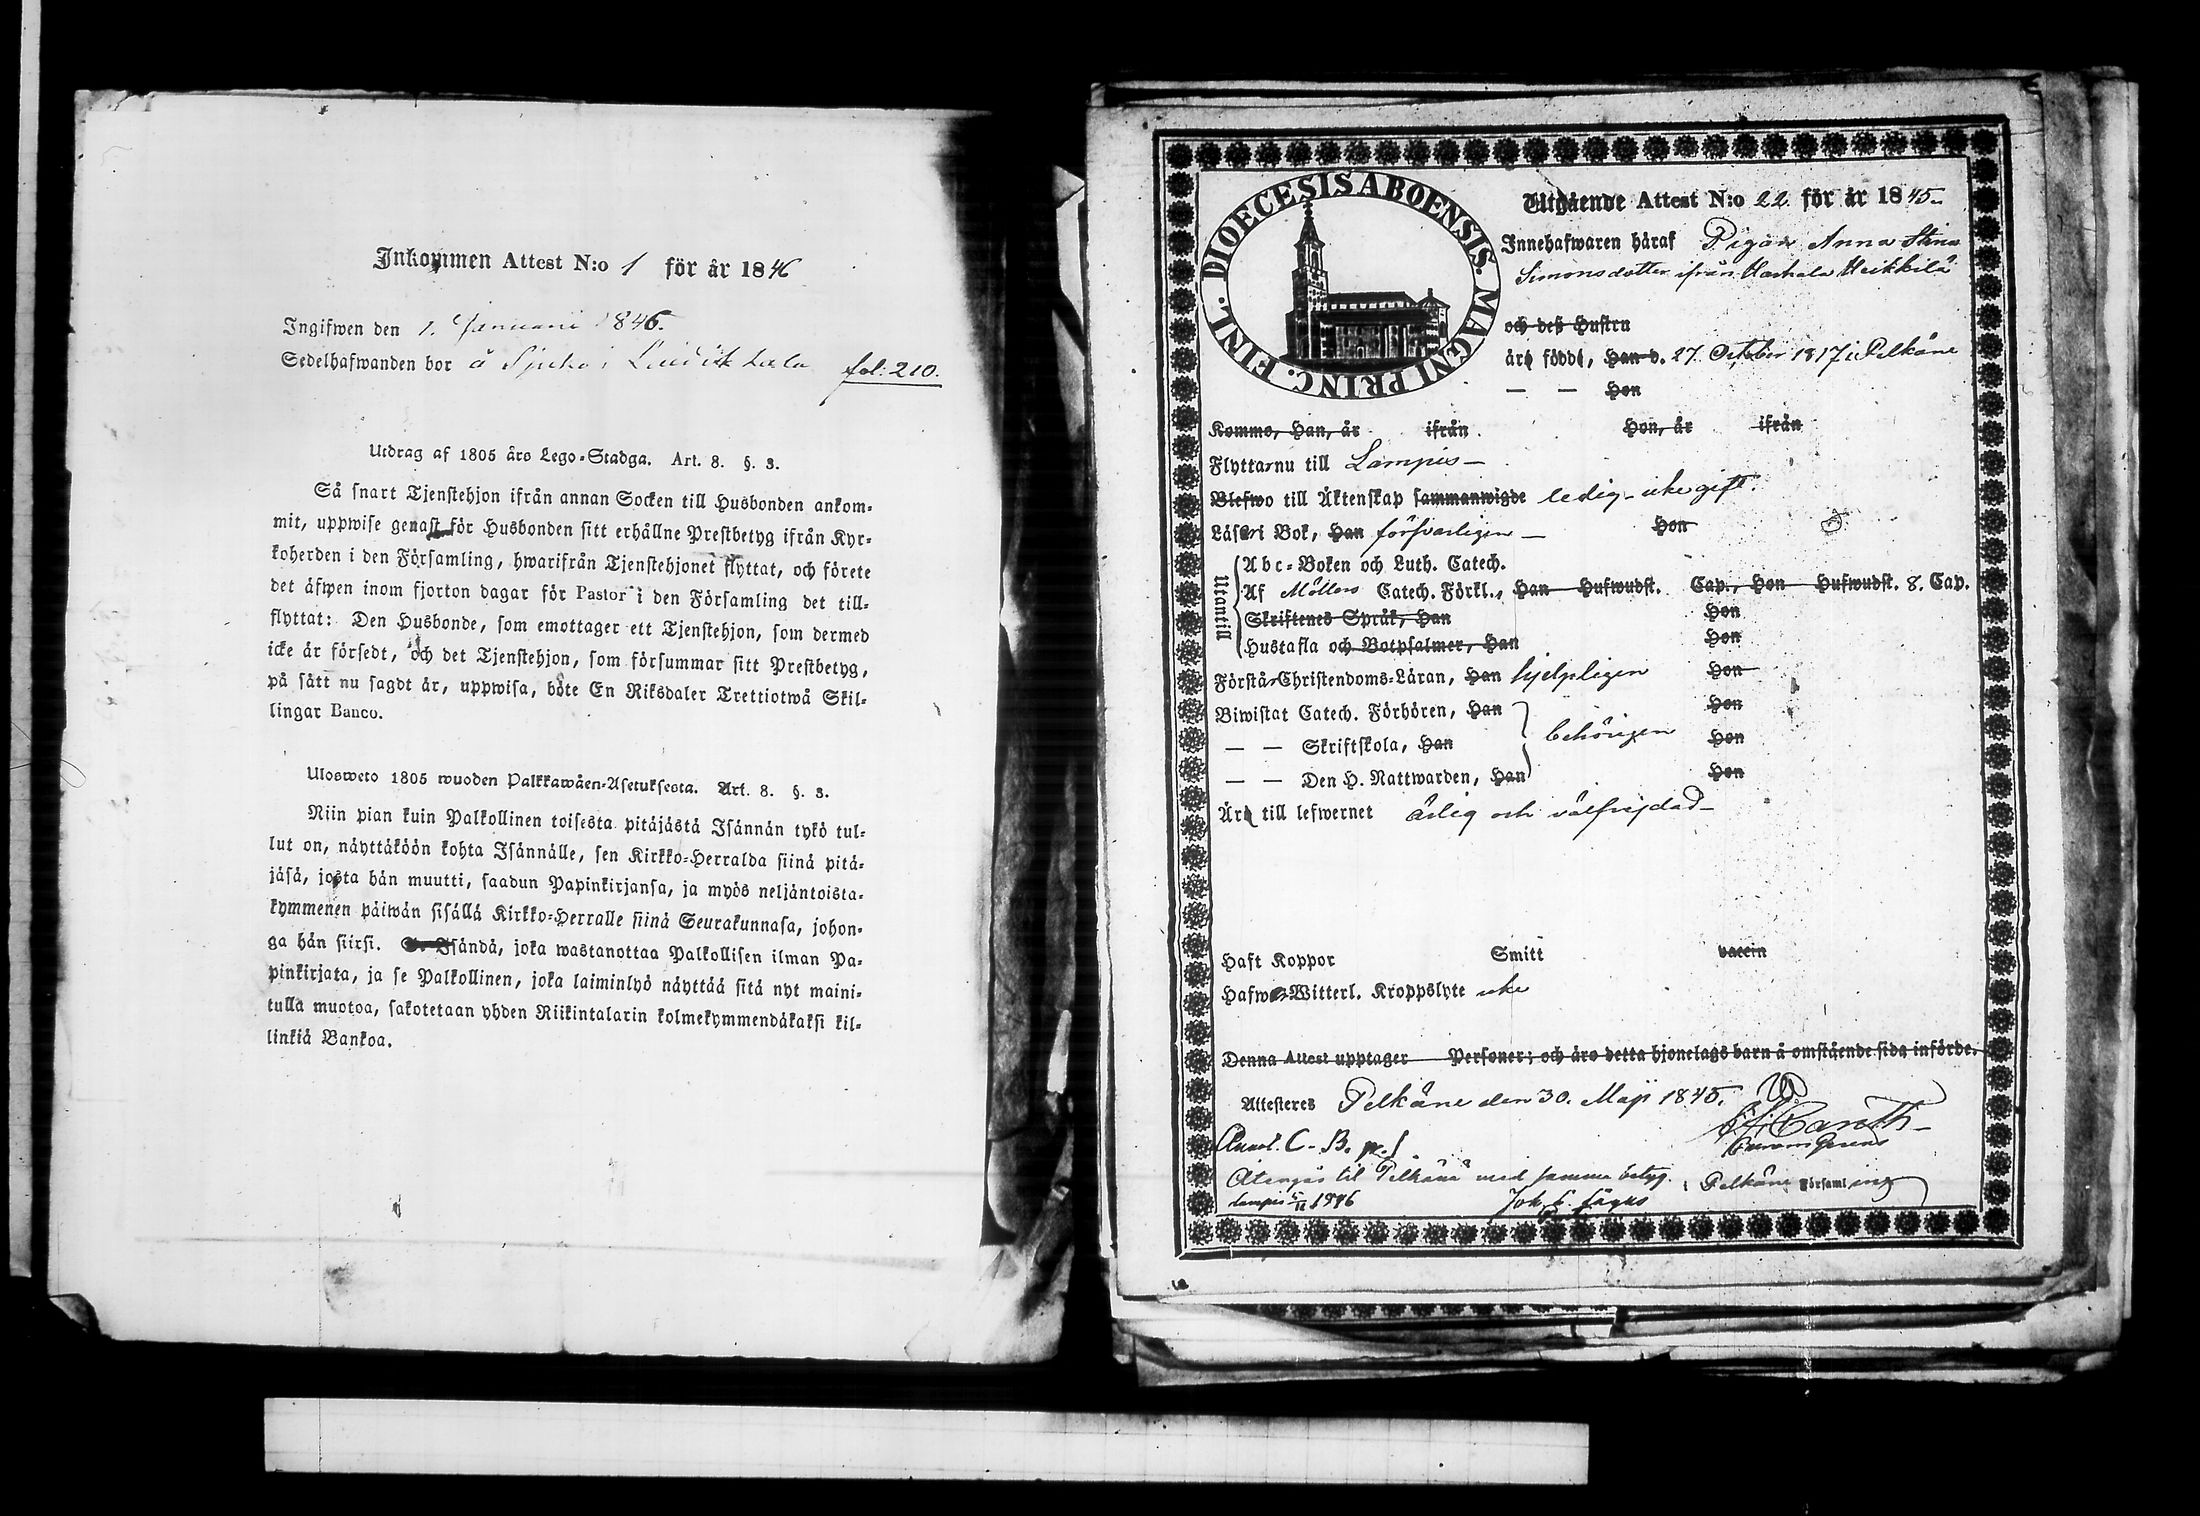 Inkommen Attest N:o 1 för år 1846
Ingifwen den 1. Januari 1846.
Sedelhafwanden bor å Sjuko i fol: 210.
Utdrag af 1805 års Lego-Stadga. Art. 8. §. 3.
Så snart Tjenstehjon ifrån annan Socken till Husbonden ankom-
mit, uppwise genast för Husbonden sitt erhållne Prestbetyg ifrån Kyr-
koherden i den Församling, hwarifrån Tjenstehjonet flyttat, och förete
det äfwen inom fjorton dagar för Pastor i den Församling det till-
flyttat: Den Husbonde, som emottager ett Tjenstehjon, som dermed
icke är försedt, och det Tjenstehjon, som försummar sitt Prestbetyg,
på sätt nu sagdt är, uppwisa, böte En Riksdaler Trettiotwå Skil-
lingar Banco.
Ulosweto 1805 wuoden Palkkawäen-Asetuksesta. Art. 8. §. 3.
Niin pian kuin Palkollinen toisesta pitäjästä Isännän tykö tul-
lut on, näyttäköön kohta Isännälle, sen Kirkko-Herralda siinä pitä-
jäsä, josta hän muutti, saadun Papinkirjansa, ja myös neljäntoista-
kymmenen päiwän sisällä Kirkko-Herralle siinä Seurakunnasa, johon-
ga hän siirsi. Isändä, joka wastanottaa Palkollisen ilman Pa-
pinkirjata, ja se Palkollinen, joka laiminlyö näyttää sitä nyt maini-
tulla muotoa, sakotetaan yhden Riikintalarin kolmekymmendäkaksi kil-
linkiä Bankoa.
DIOECESIS ABOENSIS. MAGNI PRINC. FINL.
Utgående Attest N:o 22 för år 1845
Innehafwaren häraf Pigan Anna Stina
Simonsdotter ifrån Harhala Heikkilä
och dess Hustru
äro födde, Han d. 27. October 1817 i Pelkäne
— — Hon
Kommo, Han, år ifrån Hon, år ifrån
Flyttar nu till Lampis —
Blefwo till Äktenskap sammanwigde ledig - icke gift
Läser i Bok, Han försvarligen — Hon
Utantill
Abc-Boken och Luth. Catech.
Af Möllers Catech. Förkl., Han Hufwudst. Cap., Hon Hufwudst. 8. Cap.
Skriftenes Språk, Han Hon
Hustafla och Botpsalmer, Han Hon
Förstår Christendoms-Läran, Han hjelpligen Hon
Biwistat Catech. Förhören, Han Hon
— — Skriftskola, Han behörigen Hon
— — Den H. Nattwarden, Han Hon
Äro till lefwernet ärlig och välfrejdad —
Haft Koppor Smitt vaccin
Hafwer Witterl. Kroppslyte icke
Denna Attest upptager Personer; och äro detta hjonelags barn å omstående sida införde.
Attesteres Pelkäne den 30. Maji 1845.
Annot. C. B. p.
Återgår til Pelkäne med samma betyg. i Pelkäne Församling
Lampis 1846